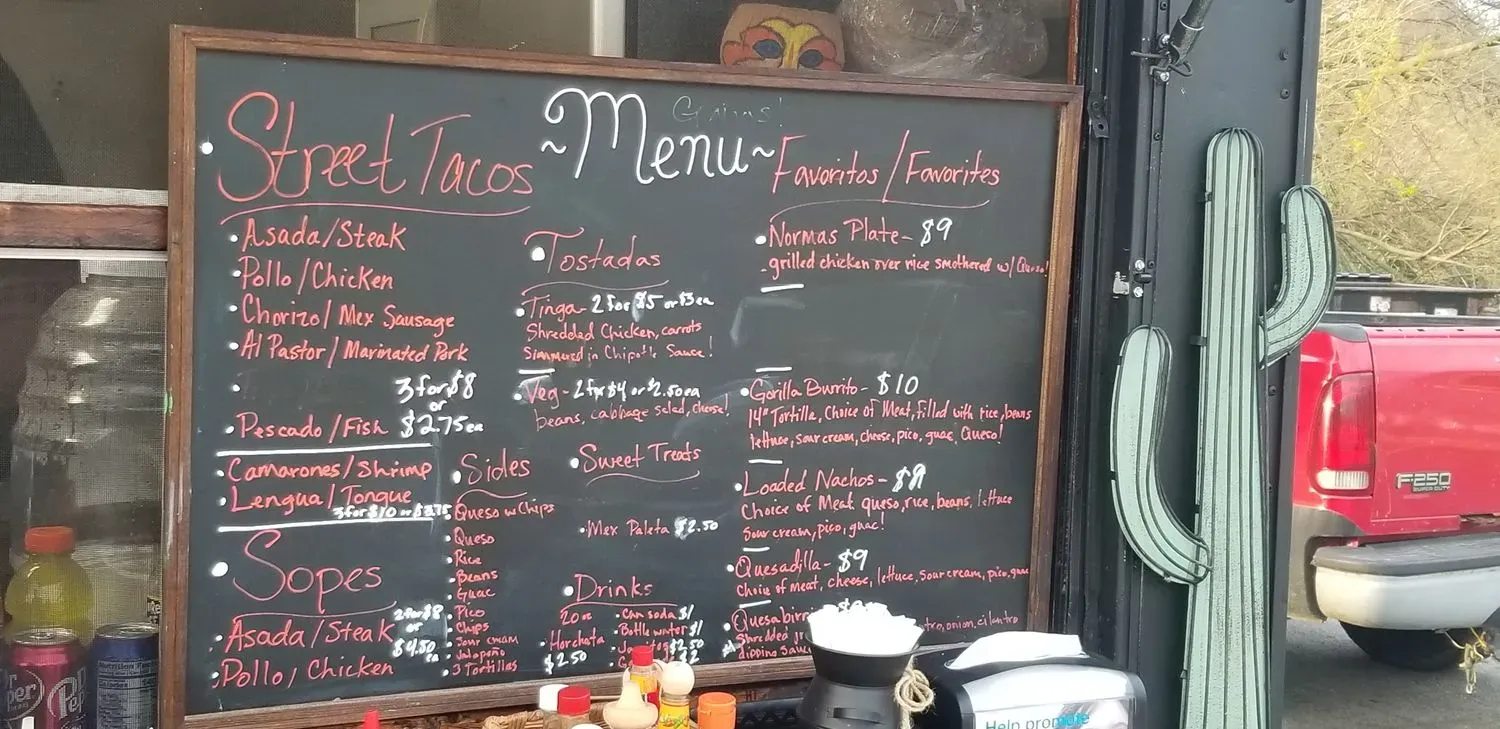 ~Menu~
Street Tacos
Asada/Steak
Pollo/Chicken
Chorizo/Mex Sausage
Al Pastor/Marinated Pork
3 for $8
or
Pescado/Fish $2.75 ea
Camarones/Shrimp
Lengua/Tongue
3 for $10 or $3.75
Sopes
2 for $8
or
Asada/Steak $4.50
ea
Pollo/Chicken
Tostadas
Tinga - 2 for $5 or $3 ea
Shredded Chicken, carrots
Simmered in Chipotle Sauce!
Veg - 2 for $4 or $2.50 ea
beans, cabbage salad, cheese!
Sides
Queso w Chips
Queso
Rice
Beans
Guac
Pico
Chips
Sour cream
Jalapeño
3 Tortillas
Sweet Treats
Mex Paleta $2.50
Drinks
20oz
Horchata
$2.50
Can soda $1
Bottle water $1
$2.50
$2
Favoritos/Favorites
Normas Plate - $9
grilled chicken over rice smothered w/ Queso!
Gorilla Burrito - $10
14" Tortilla, Choice of Meat, filled with rice, beans
lettuce, sour cream, cheese, pico, guac, Queso!
Loaded Nachos -
Choice of Meat queso, rice, beans, lettuce
Sour cream, pico, guac!
Quesadilla - $9
Choice of meat, cheese, lettuce, sour cream, pico, guac
Quesabirri
Shredded onion, cilantro
dipping Sauce
F-250
SUPER DUTY
Dr Pepper
Nutrition Facts
Help promote